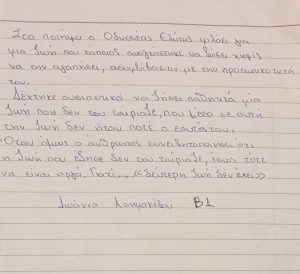 Στο ποίημα ο Οδυσσέας Ελύτης μιλάει για
μια ζωή που κάποιος αναγκάστηκε να ζήσει χωρίς
να την αγαπήσει, ασυμβίβαστη με την προσωπικότητά
του.
Δέχτηκε ουσιαστικά να ζήσει παθητικά μία
ζωή που δεν του ταίριαζε, που μέσα σε αυτή
την ζωή δεν ήταν ποτέ ο εαυτός του.
Όταν όμως ο άνθρωπος συνειδητοποιήσει ότι
η ζωή που έζησε δεν του ταίριαζε, ίσως τότε
να είναι αργά. Γιατί... «Δεύτερη ζωή δεν έχει»
Ιωάννα Β1